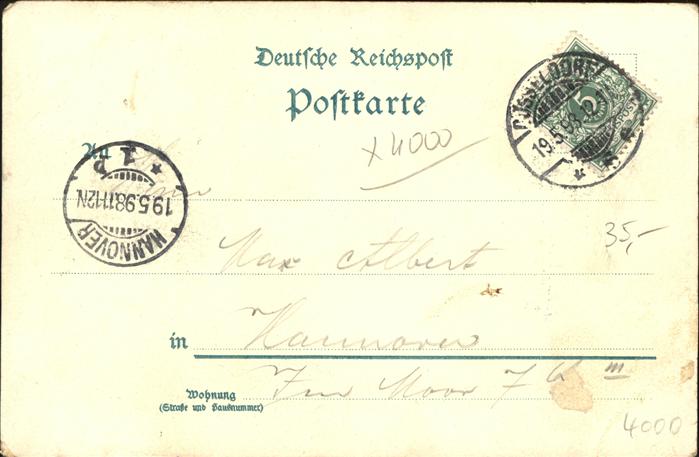 Deutsche Reichspost
Postkarte
x 4000
DÜSSELDORF
19.5.98
5
REICHSPOST
An
* 1 D
19.5.98.11-12N.
HANNOVER
35,-
Max Albert
in Hannover
Im Moor 7
III
Wohnung
(Straße und Hausnummer)
4000